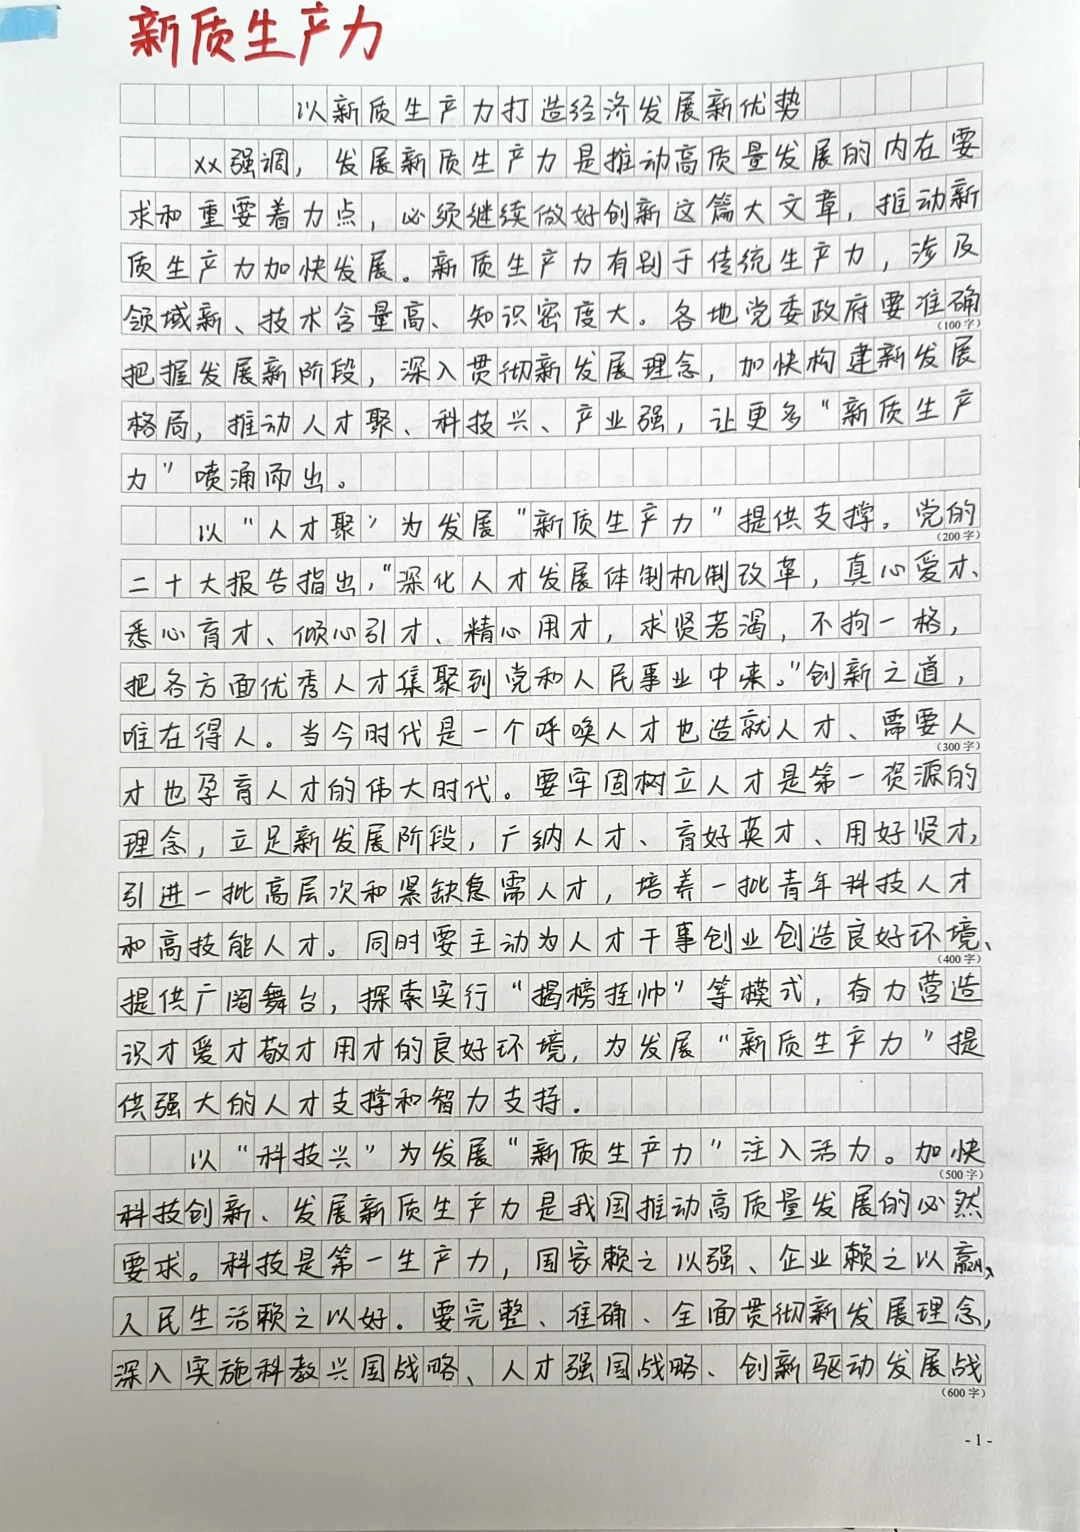 新质生产力
以新质生产力打造经济发展新优势
xx强调，发展新质生产力是推动高质量发展的内在要
求和重要着力点，必须继续做好创新这篇大文章，推动新
质生产力加快发展。新质生产力有别于传统生产力，涉及
领域新、技术含量高、知识密度大。各地党委政府要准确
(100字)
把握发展新阶段，深入贯彻新发展理念，加快构建新发展
格局，推动人才聚、科技兴、产业强，让更多“新质生产
力”喷涌而出。
以“人才聚”为发展“新质生产力”提供支撑。党的
(200字)
二十大报告指出，“深化人才发展体制机制改革，真心爱才、
悉心育才、倾心引才、精心用才，求贤若渴，不拘一格，
把各方面优秀人才集聚到党和人民事业中来。”创新之道，
唯在得人。当今时代是一个呼唤人才也造就人才、需要人
(300字)
才也孕育人才的伟大时代。要牢固树立人才是第一资源的
理念，立足新发展阶段，广纳人才、育好英才、用好贤才，
引进一批高层次和紧缺急需人才，培养一批青年科技人才
和高技能人才。同时要主动为人才干事创业创造良好环境、
(400字)
提供广阔舞台，探索实行“揭榜挂帅”等模式，奋力营造
识才爱才敬才用才的良好环境，为发展“新质生产力”提
供强大的人才支撑和智力支持．
以“科技兴”为发展“新质生产力”注入活力。加快
(500字)
科技创新、发展新质生产力是我国推动高质量发展的必然
要求。科技是第一生产力，国家赖之以强、企业赖之以赢、
人民生活赖之以好．要完整、准确、全面贯彻新发展理念，
深入实施科教兴国战略、人才强国战略、创新驱动发展战
(600字)
- 1 -